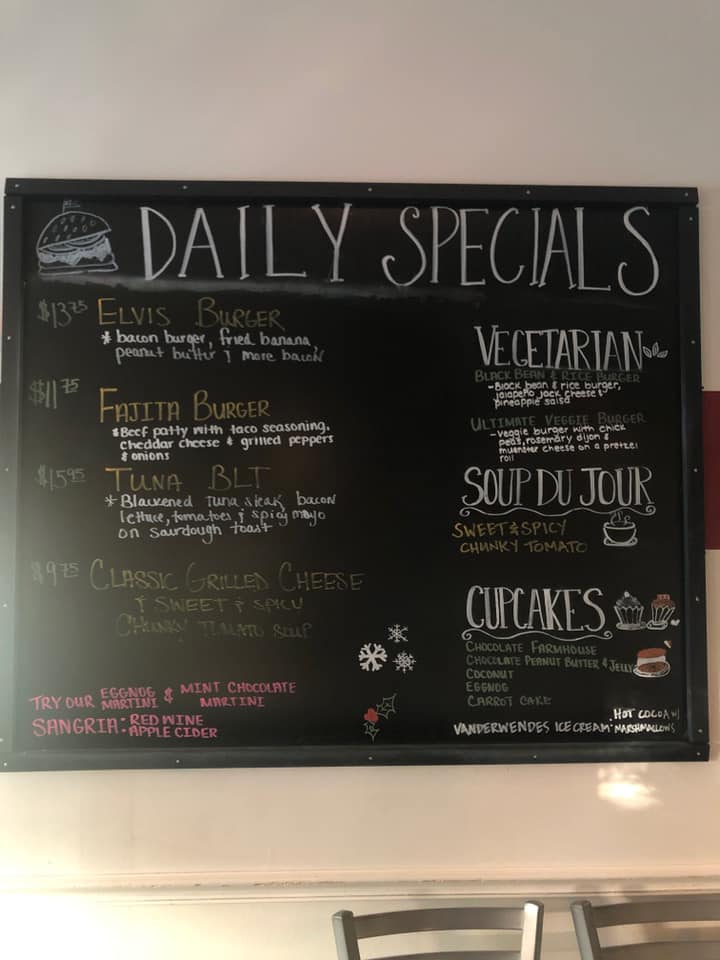 DAILY SPECIALS
$13.75 ELVIS BURGER
* bacon burger, fried banana,
peanut butter & more bacon
$11.75
FAJITA BURGER
*Beef patty with taco seasoning,
cheddar cheese & grilled peppers
& onions
$15.95 TUNA BLT
* Blackened tuna steak, bacon
lettuce, tomatoes & spicy mayo
on sourdough toast
$9.75 CLASSIC GRILLED CHEESE
& SWEET & SPICY
CHUNKY TOMATO SOUP
TRY OUR EGGNOG MARTINI & MINT CHOCOLATE MARTINI
SANGRIA: RED WINE
APPLE CIDER
VEGETARIAN
BLACK BEAN & RICE BURGER
-Black bean & rice burger,
jalapeño jack cheese &
pineapple salsa
ULTIMATE VEGGIE BURGER
-Veggie burger with chick
peas, rosemary dijon &
muenster cheese on a pretzel
roll
SOUP DU JOUR
SWEET & SPICY
CHUNKY TOMATO
CUPCAKES
CHOCOLATE FARMHOUSE
CHOCOLATE PEANUT BUTTER & JELLY
COCONUT
EGGNOG
CARROT CAKE
VANDERWENDES ICE CREAM: HOT COCOA W/
MARSHMALLOWS